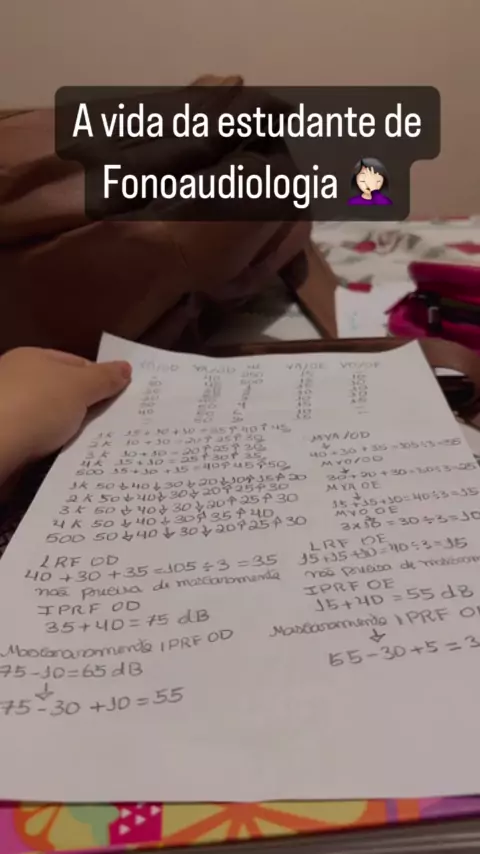 A vida da estudante de
Fonoaudiologia
VO/OD VA/OD VA/OE VO/OE
1K 15+10+10=35↑40↑45
2K 10+10=20↑25↑30
3K 10+10=20↑25↑30
4K 15+10=25↑30↑35
500 15+10+15=40↑45↑50
1K 50↓40↓30↓20↓10↑15↑20
2K 50↓40↓30↓20↑25↑30
3K 50↓40↓30↓20↑25↑30
4K 50↓40↓30↑35↑40
500 50↓40↓30↓20↑25↑30
LRF OD
40+30+35=105÷3=35
não precisa de mascaramento
IPRF OD
35+40=75 dB
Mascaramento IPRF OD
75-10=65 dB
↓
75-30+10=55
MVA/OD
↓
40+30+35=105÷3=35
MVO/OD
↓
30+20+30=
MVA OE
↓
15+15+10=40÷3=15
MVO OE
3x10=30÷3=10
LRF OE
15+15+10=40÷3=15
não precisa de
IPRF OE
15+40=55 dB
Mascaramento IPRF
↓
55-30+5=3